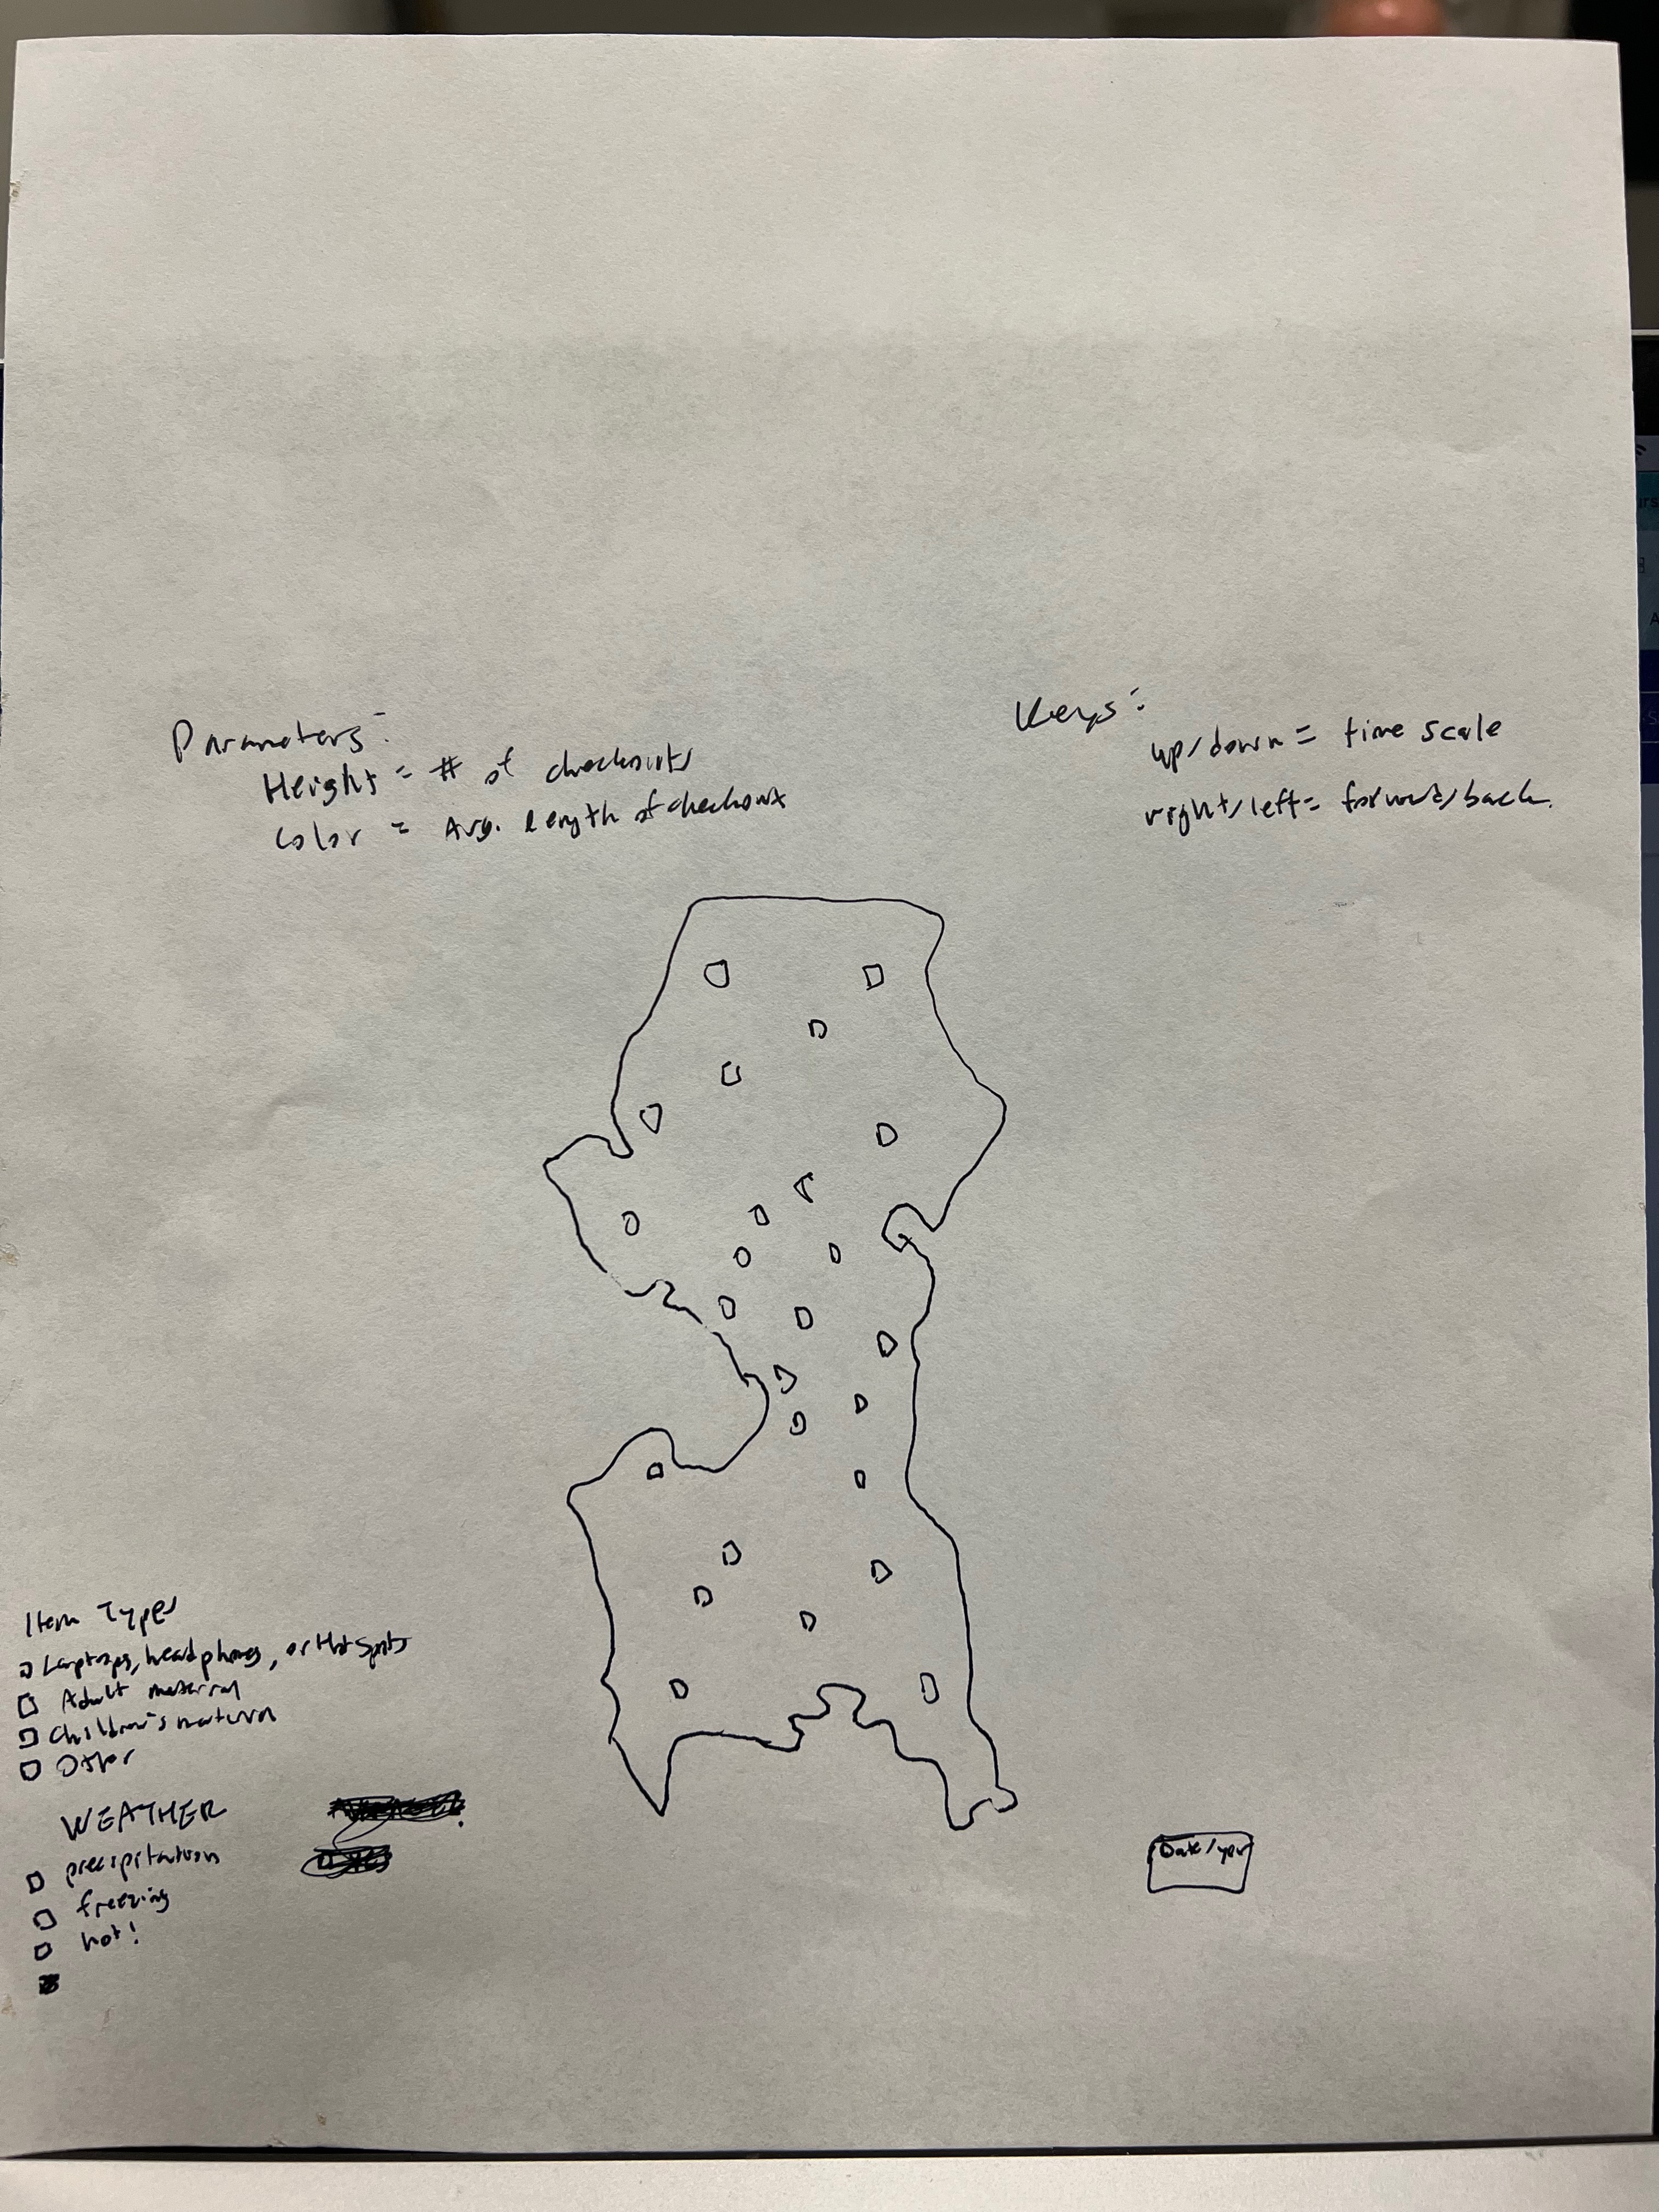 Parameters:
Height = # of checkouts
Color = Avg. length of checkout
Keys:
up/down = time scale
right/left = forward/back
Item Types
Laptops, headphones, or Hot Spots
Adult material
Children's material
Other
WEATHER
precipitation
freezing
hot!
Date/year